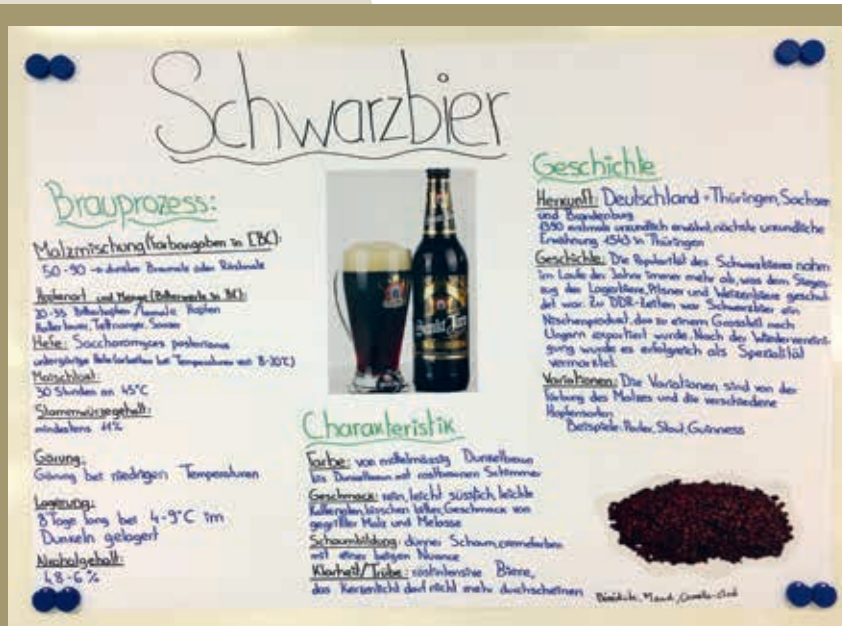 Schwarzbier
Brauprozess:
Malzmischung (Farbangaben in EBC):
50-90 → dunkles Braumalz oder Röstmalz
Hopfenart und Menge (Bitterwerte in BE):
20-35 Bitterhopfen / Hopfen
Hallertauer, Tettnanger, Saazer
Hefe: Saccharomyces
untergärige Hefe bei Temperaturen von 8-20°C)
30 Stunden an 45°C
Stammwürzegehalt:
mindestens 11%
Gärung:
Gärung bei niedrigen Temperaturen
Lagerung:
8 Tage lang bei 4-9°C im
Dunkeln gelagert
Alkoholgehalt:
4.8-6%
Charakteristik
Farbe: von mittelmässig Dunkelbraun
bis Dunkelbraun mit Schimmer
Geschmack: rein, leicht süsslich, leichte
bisschen bitter, Geschmack von
gegrillter Malz und Melasse
Schaumbildung: dünner Schaum, cremefarben
mit einer beigen Nuance
Klarheit/Trübe: röstintensive Biere,
das Kerzenlicht darf nicht mehr durchscheinen
Geschichte
Herkunft: Deutschland - Thüringen, Sachsen
und Brandenburg
1390 erstmals urkundlich erwähnt, nächste urkundliche
Erwähnung 1543 in Thüringen
Geschichte: Die Popularität des Schwarzbieres nahm
im Laufe der Jahre immer mehr ab, was dem Sieges-
zug der Lagerbiere, Pilsner und Weizenbiere geschul-
det war. Zu DDR-Zeiten war Schwarzbier ein
Nischenprodukt, das zu einem Grossteil nach
Ungarn exportiert wurde. Nach der Wiedervereini-
gung wurde es erfolgreich als Spezialität
vermarktet.
Variationen: Die Variationen sind von der
Färbung des Malzes und die verschiedene
Hopfensorten
Beispiele: Porter, Stout, Guinness